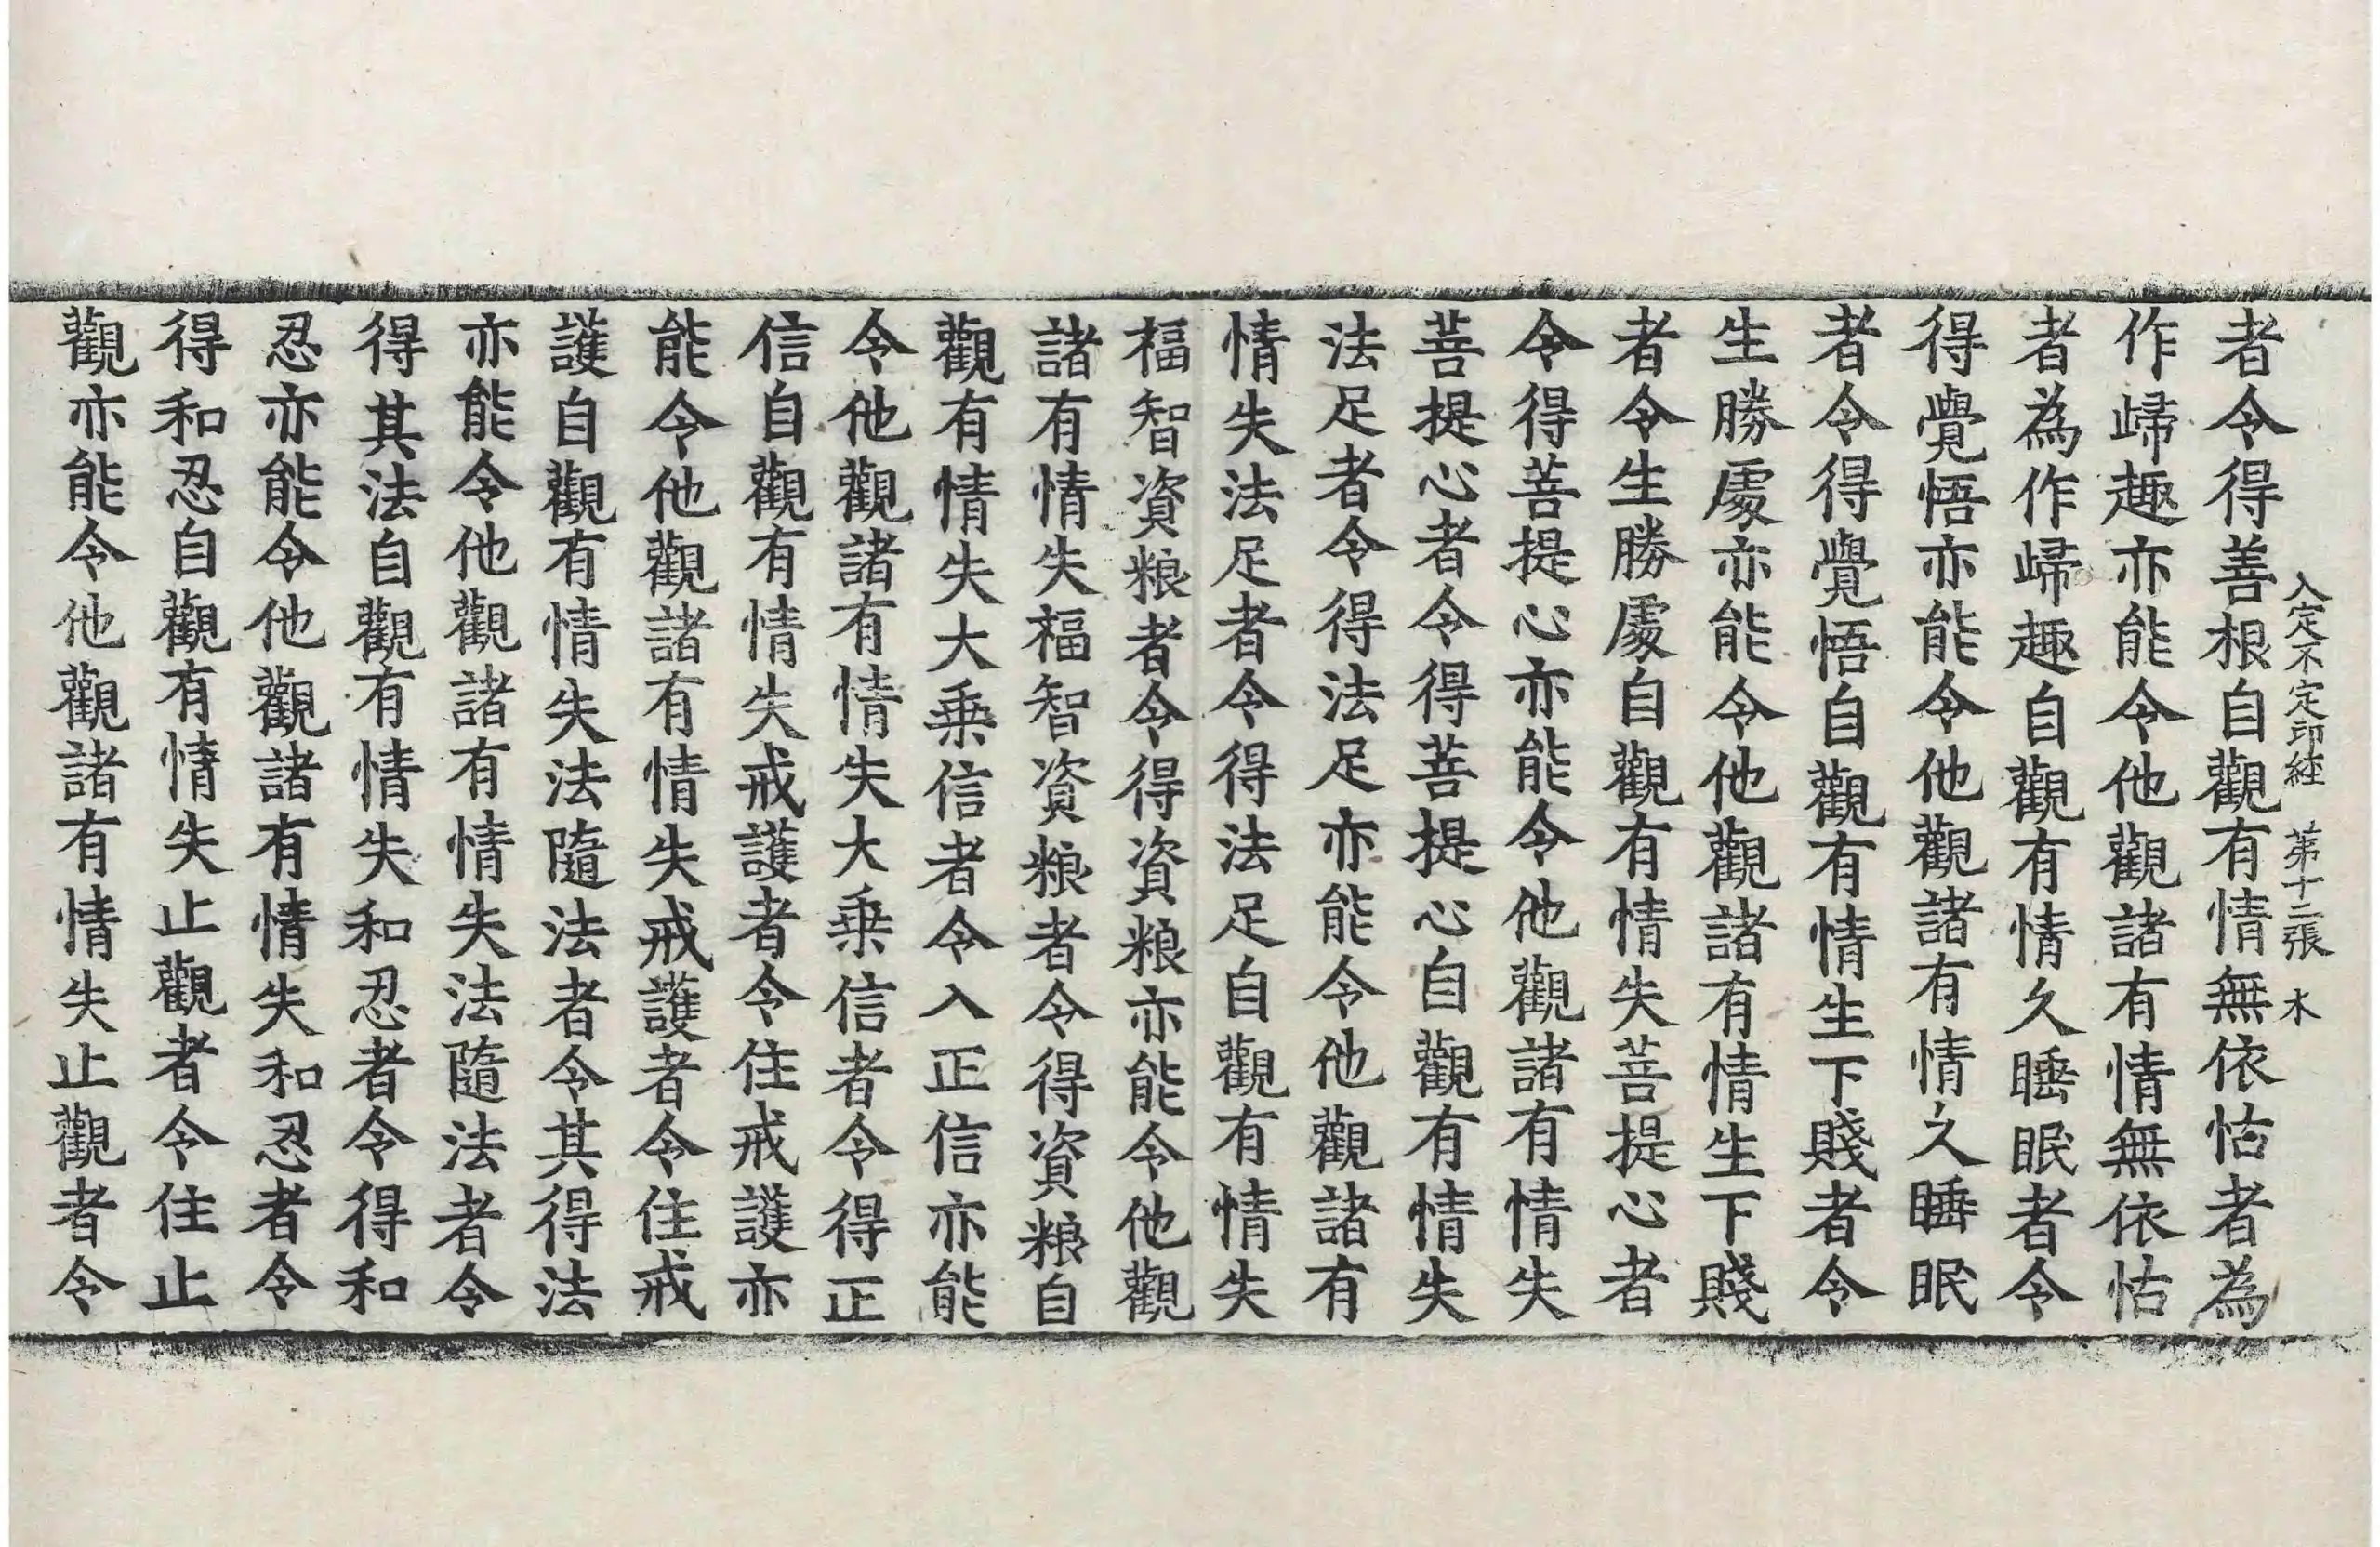 入定不定印経 第十二張 木
者令得善根自觀有情無依怙者為
作歸趣亦能令他觀諸有情無依怙
者為作歸趣自觀有情久睡眠者令
得覺悟亦能令他觀諸有情久睡眠
者令得覺悟自觀有情生下賤者令
生勝處亦能令他觀諸有情生下賤
者令生勝處自觀有情失菩提心者
令得菩提心亦能令他觀諸有情失
菩提心者令得菩提心自觀有情失
法足者令得法足亦能令他觀諸有
情失法足者令得法足自觀有情失
福智資粮者令得資粮亦能令他觀
諸有情失福智資粮者令得資粮自
觀有情失大乗信者令入正信亦能
令他觀諸有情失大乗信者令得正
信自觀有情失戒護者令住戒護亦
能令他觀諸有情失戒護者令住戒
護自觀有情失法隨法者令其得法
亦能令他觀諸有情失法隨法者令
得其法自觀有情失和忍者令得和
忍亦能令他觀諸有情失和忍者令
得和忍自觀有情失止觀者令住止
觀亦能令他觀諸有情失止觀者令